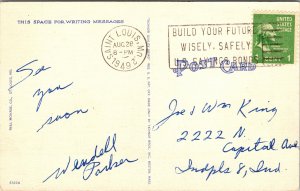 THIS SPACE FOR WRITING MESSAGES
SAINT LOUIS, MO.
AUG 26
6 - PM
1949
BUILD YOUR FUTURE
WISELY, SAFELY
U.S. SAVINGS BONDS
UNITED STATES
POSTAGE
1
POST CARD
See
you
soon.
Wendell
Joe & Wm King
2222 N.
Capitol Ave
Indpls 8, Ind.